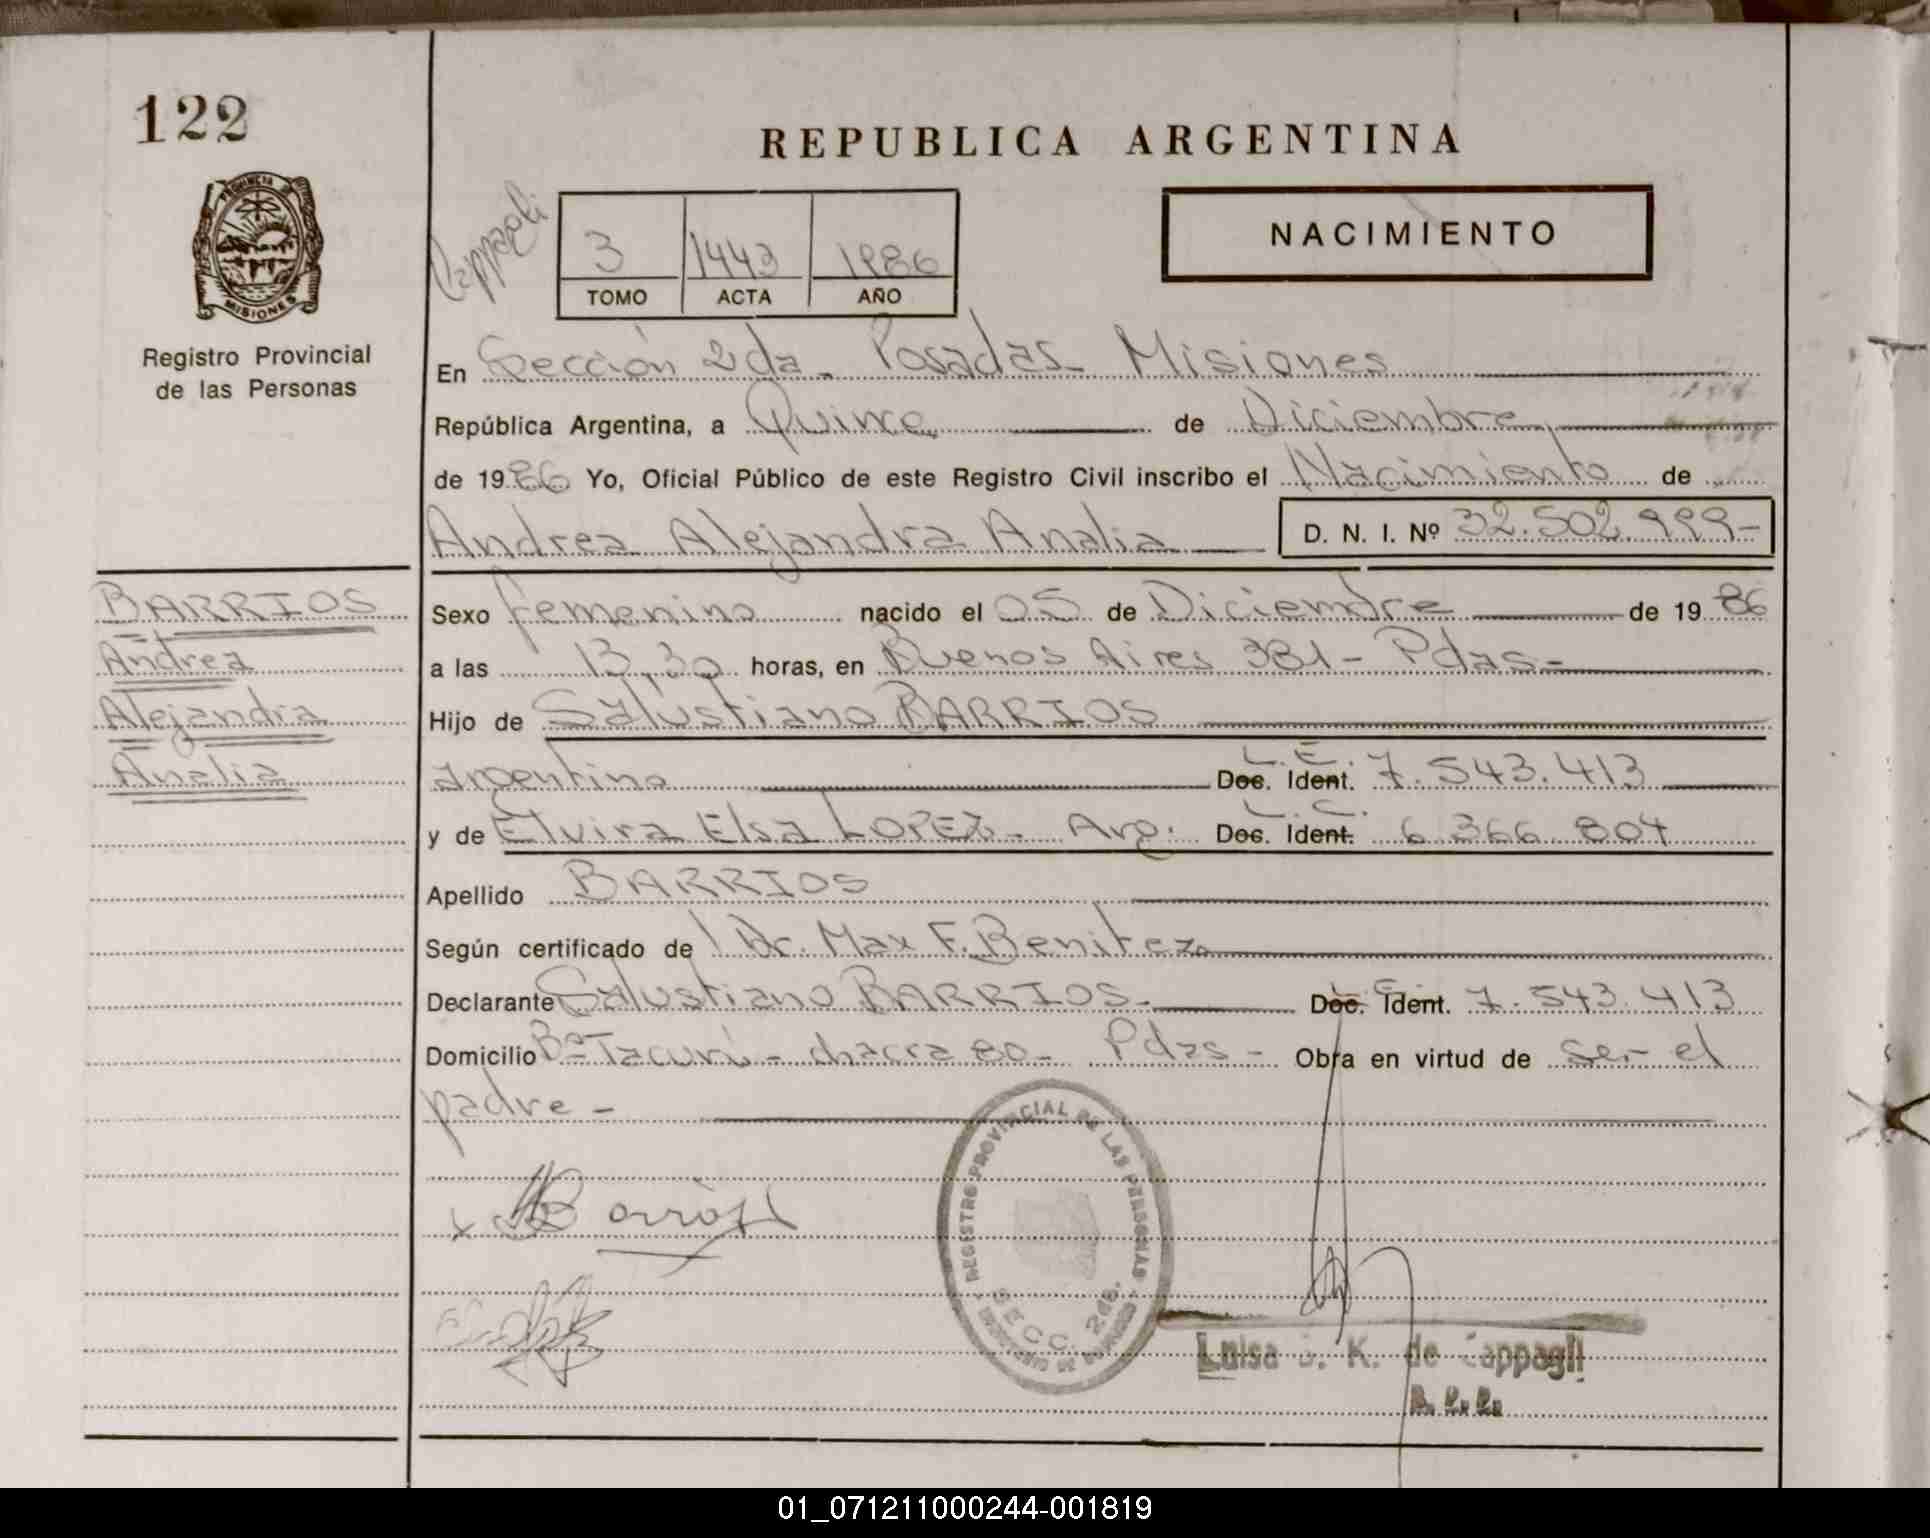 122
REPUBLICA ARGENTINA
PROVINCIA DE
MISIONES
Registro Provincial
de las Personas
Cappagli
3 1443 1986
TOMO ACTA AÑO
NACIMIENTO
En Sección 2da. Posadas - Misiones
República Argentina, a Quince de Diciembre
de 1986 Yo, Oficial Público de este Registro Civil inscribo el Nacimiento de
Andrea Alejandra Analia D. N. I. Nº 32.502.999-
BARRIOS
Andrea
Alejandra
Analia
Sexo femenino nacido el 05 de Diciembre de 1986
a las 13,30 horas, en Buenos Aires 381 - Pdas -
Hijo de Salustiano BARRIOS
argentino L.E. Doc. Ident. 7.543.413
y de Elvira Elsa LOPEZ - Arg. L.C. Doc. Ident. 6.366.804
Apellido BARRIOS
Según certificado de Dr. Max F. Benitez
Declarante Salustiano BARRIOS - Doc. Ident. 7.543.413
Domicilio Bº Tacurú - chacra 80 - Pdas - Obra en virtud de ser el
padre -
x Barrios
REGISTRO PROVINCIAL DE LAS PERSONAS
SECC. 2da.
Luisa K. de Cappagli
01_071211000244-001819